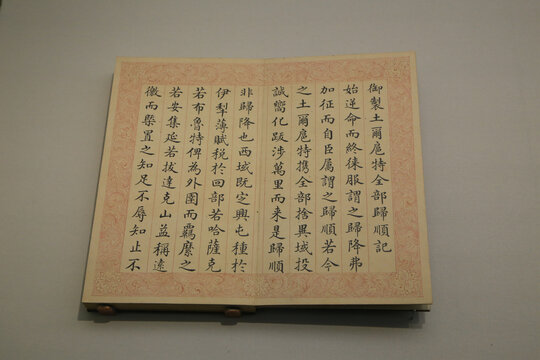 御製土爾扈特全部歸順記
始逆命而終徠服謂之歸降弗
加征而自臣屬謂之歸順若今
之土爾扈特携全部捨異域投
誠嚮化跋涉萬里而來是歸順
非歸降也西域既定興屯種於
伊犁薄賦稅於回部若哈薩克
若布魯特俾為外圉而羈縻之
若安集延若拔達克山益稱遠
徼而槩置之知足不辱知止不